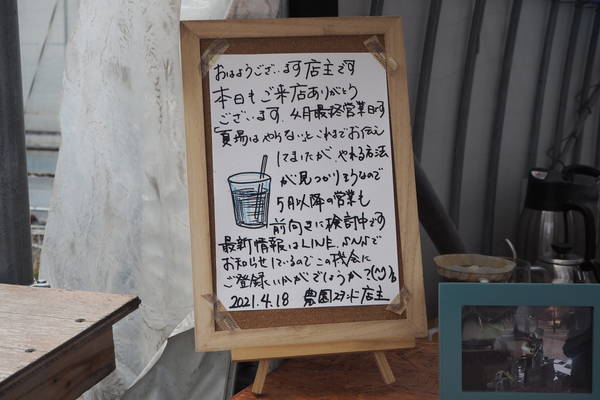 おはようございます店主です
本日もご来店ありがとう
ございます、4月最終営業日です
「夏場はやらない」とこれまでお伝え
してまいたが、やれる方法
が見つかりそうなので
5月以降の営業も
前向きに検討中です
最新情報はLINE、SNSで
お知らせしているのでこの機会に
ご登録いかがでしょうか
2021.4.18 農園スタンド店主